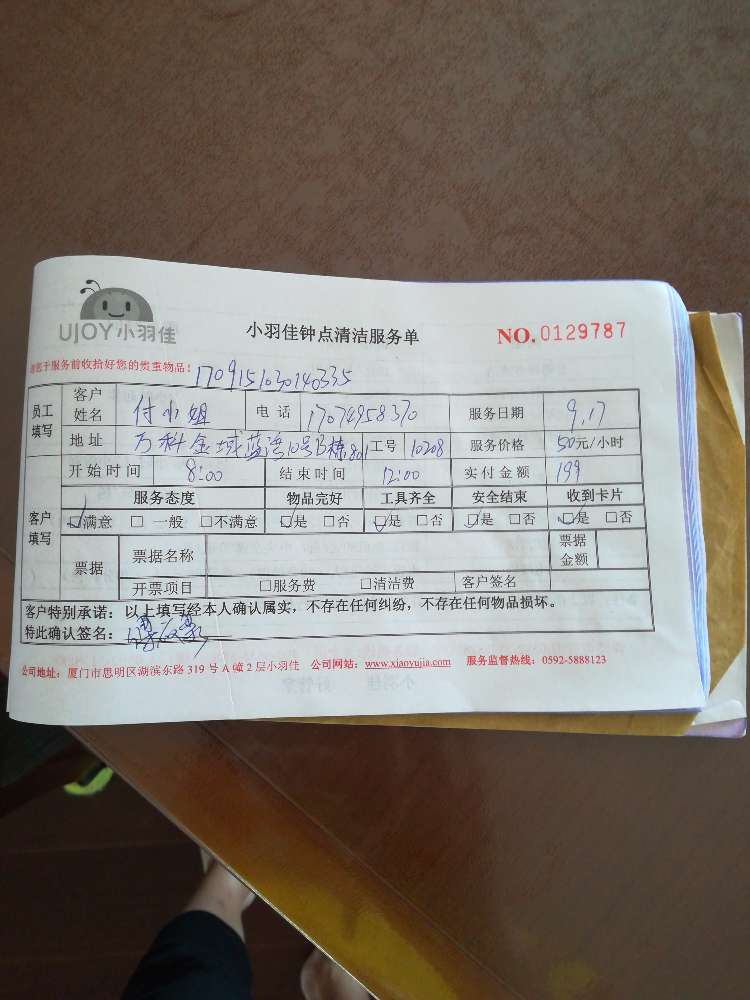 UJOY小羽佳 小羽佳钟点清洁服务单 NO.0129787
于服务前收拾好您的贵重物品！ 1709151030140335
员工填写 客户姓名 付小姐 电话 17074958370 服务日期 9.17
地址 万科金域蓝湾10号B栋801 工号 10208 服务价格 50元/小时
开始时间 8:00 结束时间 12:00 实付金额 199
客户填写 服务态度 物品完好 工具齐全 安全结束 收到卡片
☑满意 □ 一般 □不满意 ☑是 □否 ☑是 □否 ☑是 □否 ☑是 □否
票据 票据名称 票据金额
开票项目 □服务费 □清洁费 客户签名
客户特别承诺：以上填写经本人确认属实，不存在任何纠纷，不存在任何物品损坏。
特此确认签名：
公司地址：厦门市思明区湖滨东路 319 号 A 幢 2 层小羽佳 公司网站：www.xiaoyujia.com 服务监督热线：0592-5888123